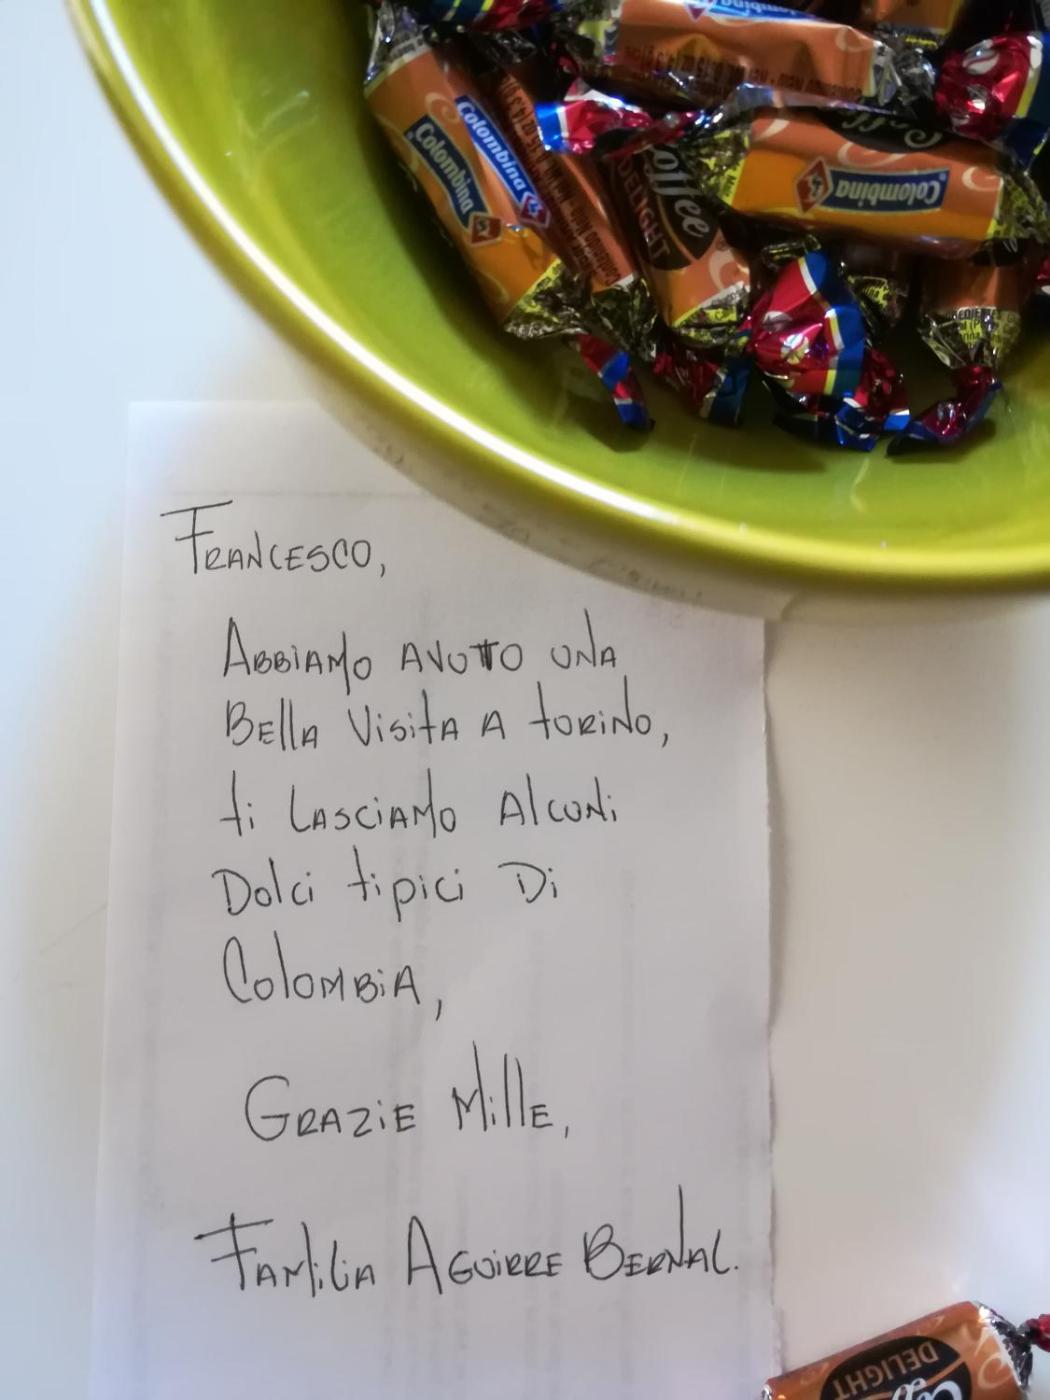 Colombina
Colombina
Coffee
DELIGHT
Colombina
FRANCESCO,
ABBIAMO AVUTO UNA
BELLA VISITA A TORINO,
ti LASCIAMO ALCUNI
DOLCI tipici Di
COLOMBIA,
GRAZIE MILLE,
FAMILIA AGUIRRE BERNAL.
DELIGHT